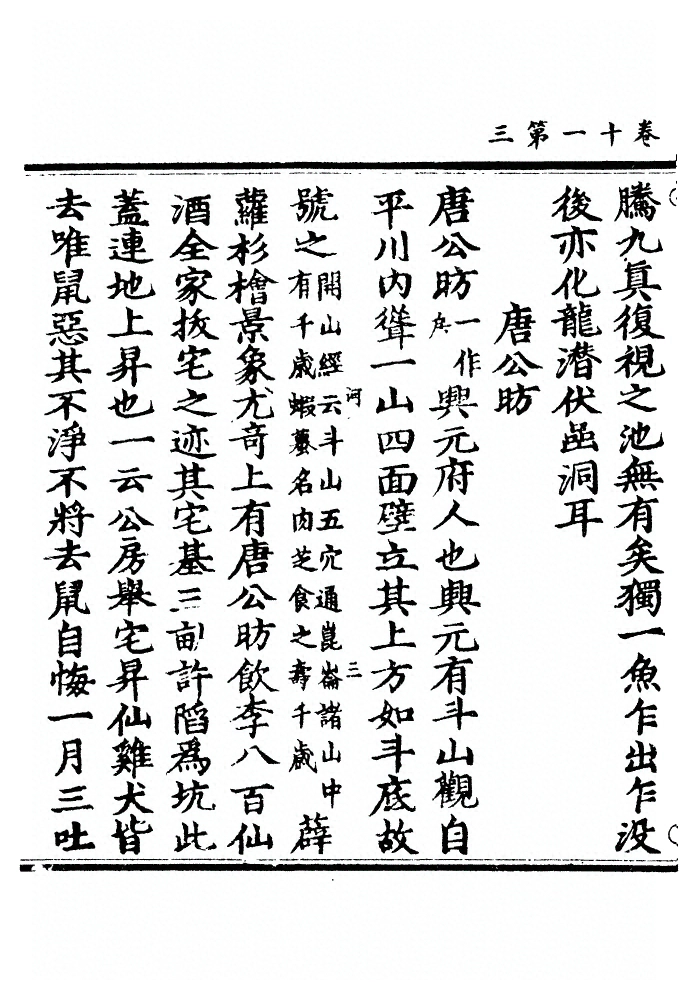 卷十一第三
騰九真復視之池無有矣獨一魚乍出乍没
後亦化龍潜伏邑洞耳
唐公昉
唐公昉一作房興元府人也興元有斗山觀自
平川内聳一山四面壁立其上方如斗底故
號之開山經云斗山五穴通崑崙諸山中有千歳蝦蟇名肉芝食之壽千歳薜
河
三
蘿杉檜景象尤奇上有唐公昉飲李八百仙
酒全家拔宅之迹其宅基三畝許陷爲坑此
蓋連地上昇也一云公房舉宅昇仙雞犬皆
去唯鼠惡其不淨不將去鼠自悔一月三吐